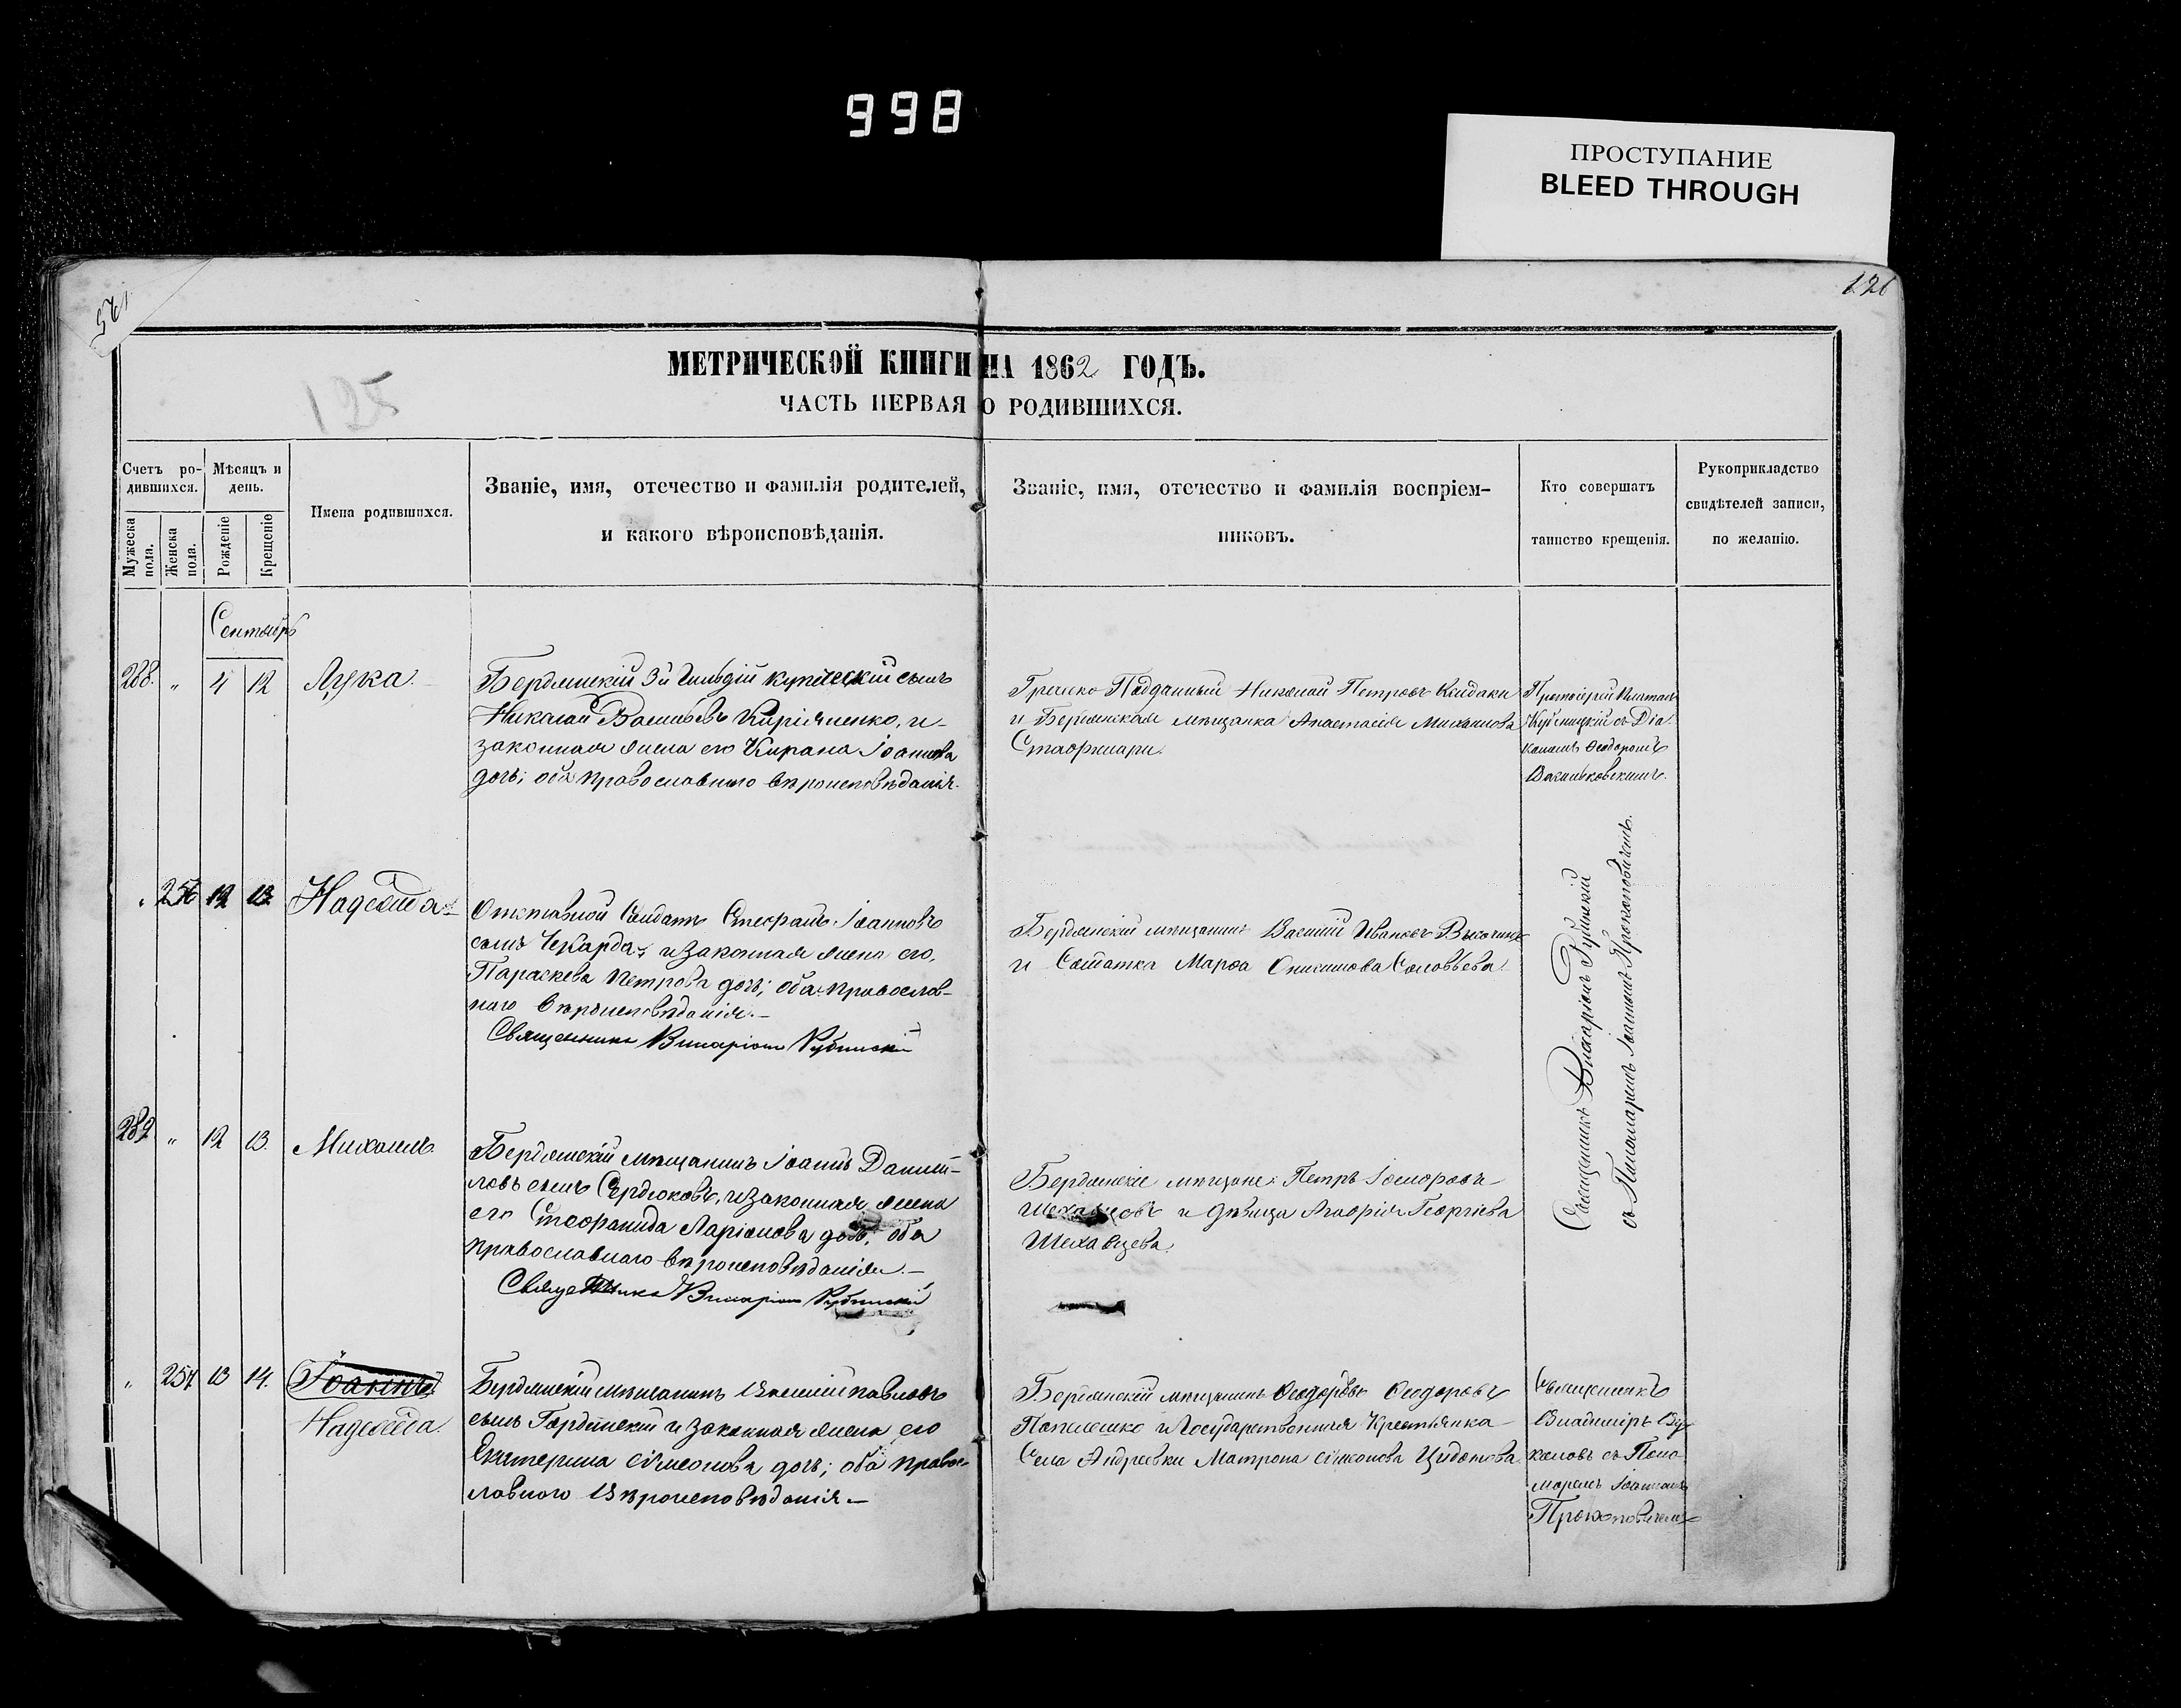 998
ПРОСТУПАНИЕ
BLEED THROUGH
125
126
125
МЕТРИЧЕСКОЙ КНИГИ НА 1862 ГОДЪ.
ЧАСТЬ ПЕРВАЯ О РОДИВШИХСЯ.
Счетъ ро-
дившихся.
Мужеска пола.
Женска пола.
Мѣсяцъ и
день.
Рожденіе
Крещеніе
Имена родившихся.
Званіе, имя, отечество и фамилія родителей,
и какого вѣроисповѣданія.
Званіе, имя, отечество и фамилія воспріем-
никовъ.
Кто совершатъ
таинство крещенія.
Рукоприкладство
свидѣтелей записи,
по желанію.
Сентябрь
288. " 4 12 Лука.
Бердянскій 3й Гильдіи купеческій сынъ
Николай Васильевъ Киріяненко, и
законная жена его Іоаннова
дочь; оба православнаго вѣроисповѣданія.
Греческо Подданный Николай Петровъ
и Бердянская мѣщанка Анастасія Михаилова
Протоіерей
съ Діа
кономъ Ѳеодоромъ
Васильковскимъ.
" 256 12 13 Надежда
Отставной Солдатъ Стефанъ Іоанновъ
сынъ Чекарда, и законная жена его,
Параскева Петрова дочь; оба православ-
наго вѣроисповѣданія.
Священникъ Виссаріонъ Рубинскій
Бердянскій мѣщанинъ Василій Ивановъ
и Солдатка Марѳа Соловьева.
Священникъ Виссаріонъ Рубинскій
съ Пономаремъ Іоанномъ Прокоповичемъ.
289 " 12 13. Михаилъ
Бердянскій мѣщанинъ Іоаннъ Даніи-
ловъ сынъ Сердюковъ, и законная жена
его Стефанида Ларіонова дочь; оба
православнаго вѣроисповѣданія.
Священникъ Виссаріонъ Рубинскій
Бердянскіе мѣщане: Петръ
и дѣвица Георгіева
Шехавцева.
" 257 13 14. Іоаннъ
Надежда.
Бердянскій мѣщанинъ Василій Павловъ
сынъ Гординскій и законная жена его
Екатерина Сімеонова дочь; оба правос-
лавнаго вѣроисповѣданія
Бердянскій мѣщанинъ Ѳеодоръ Ѳеодоровъ
и Государственная Крестьянка
Села Андреевки Матрона Сімеонова
Священникъ
Владиміръ
съ Поно
маремъ Іоанномъ
Прокоповичемъ